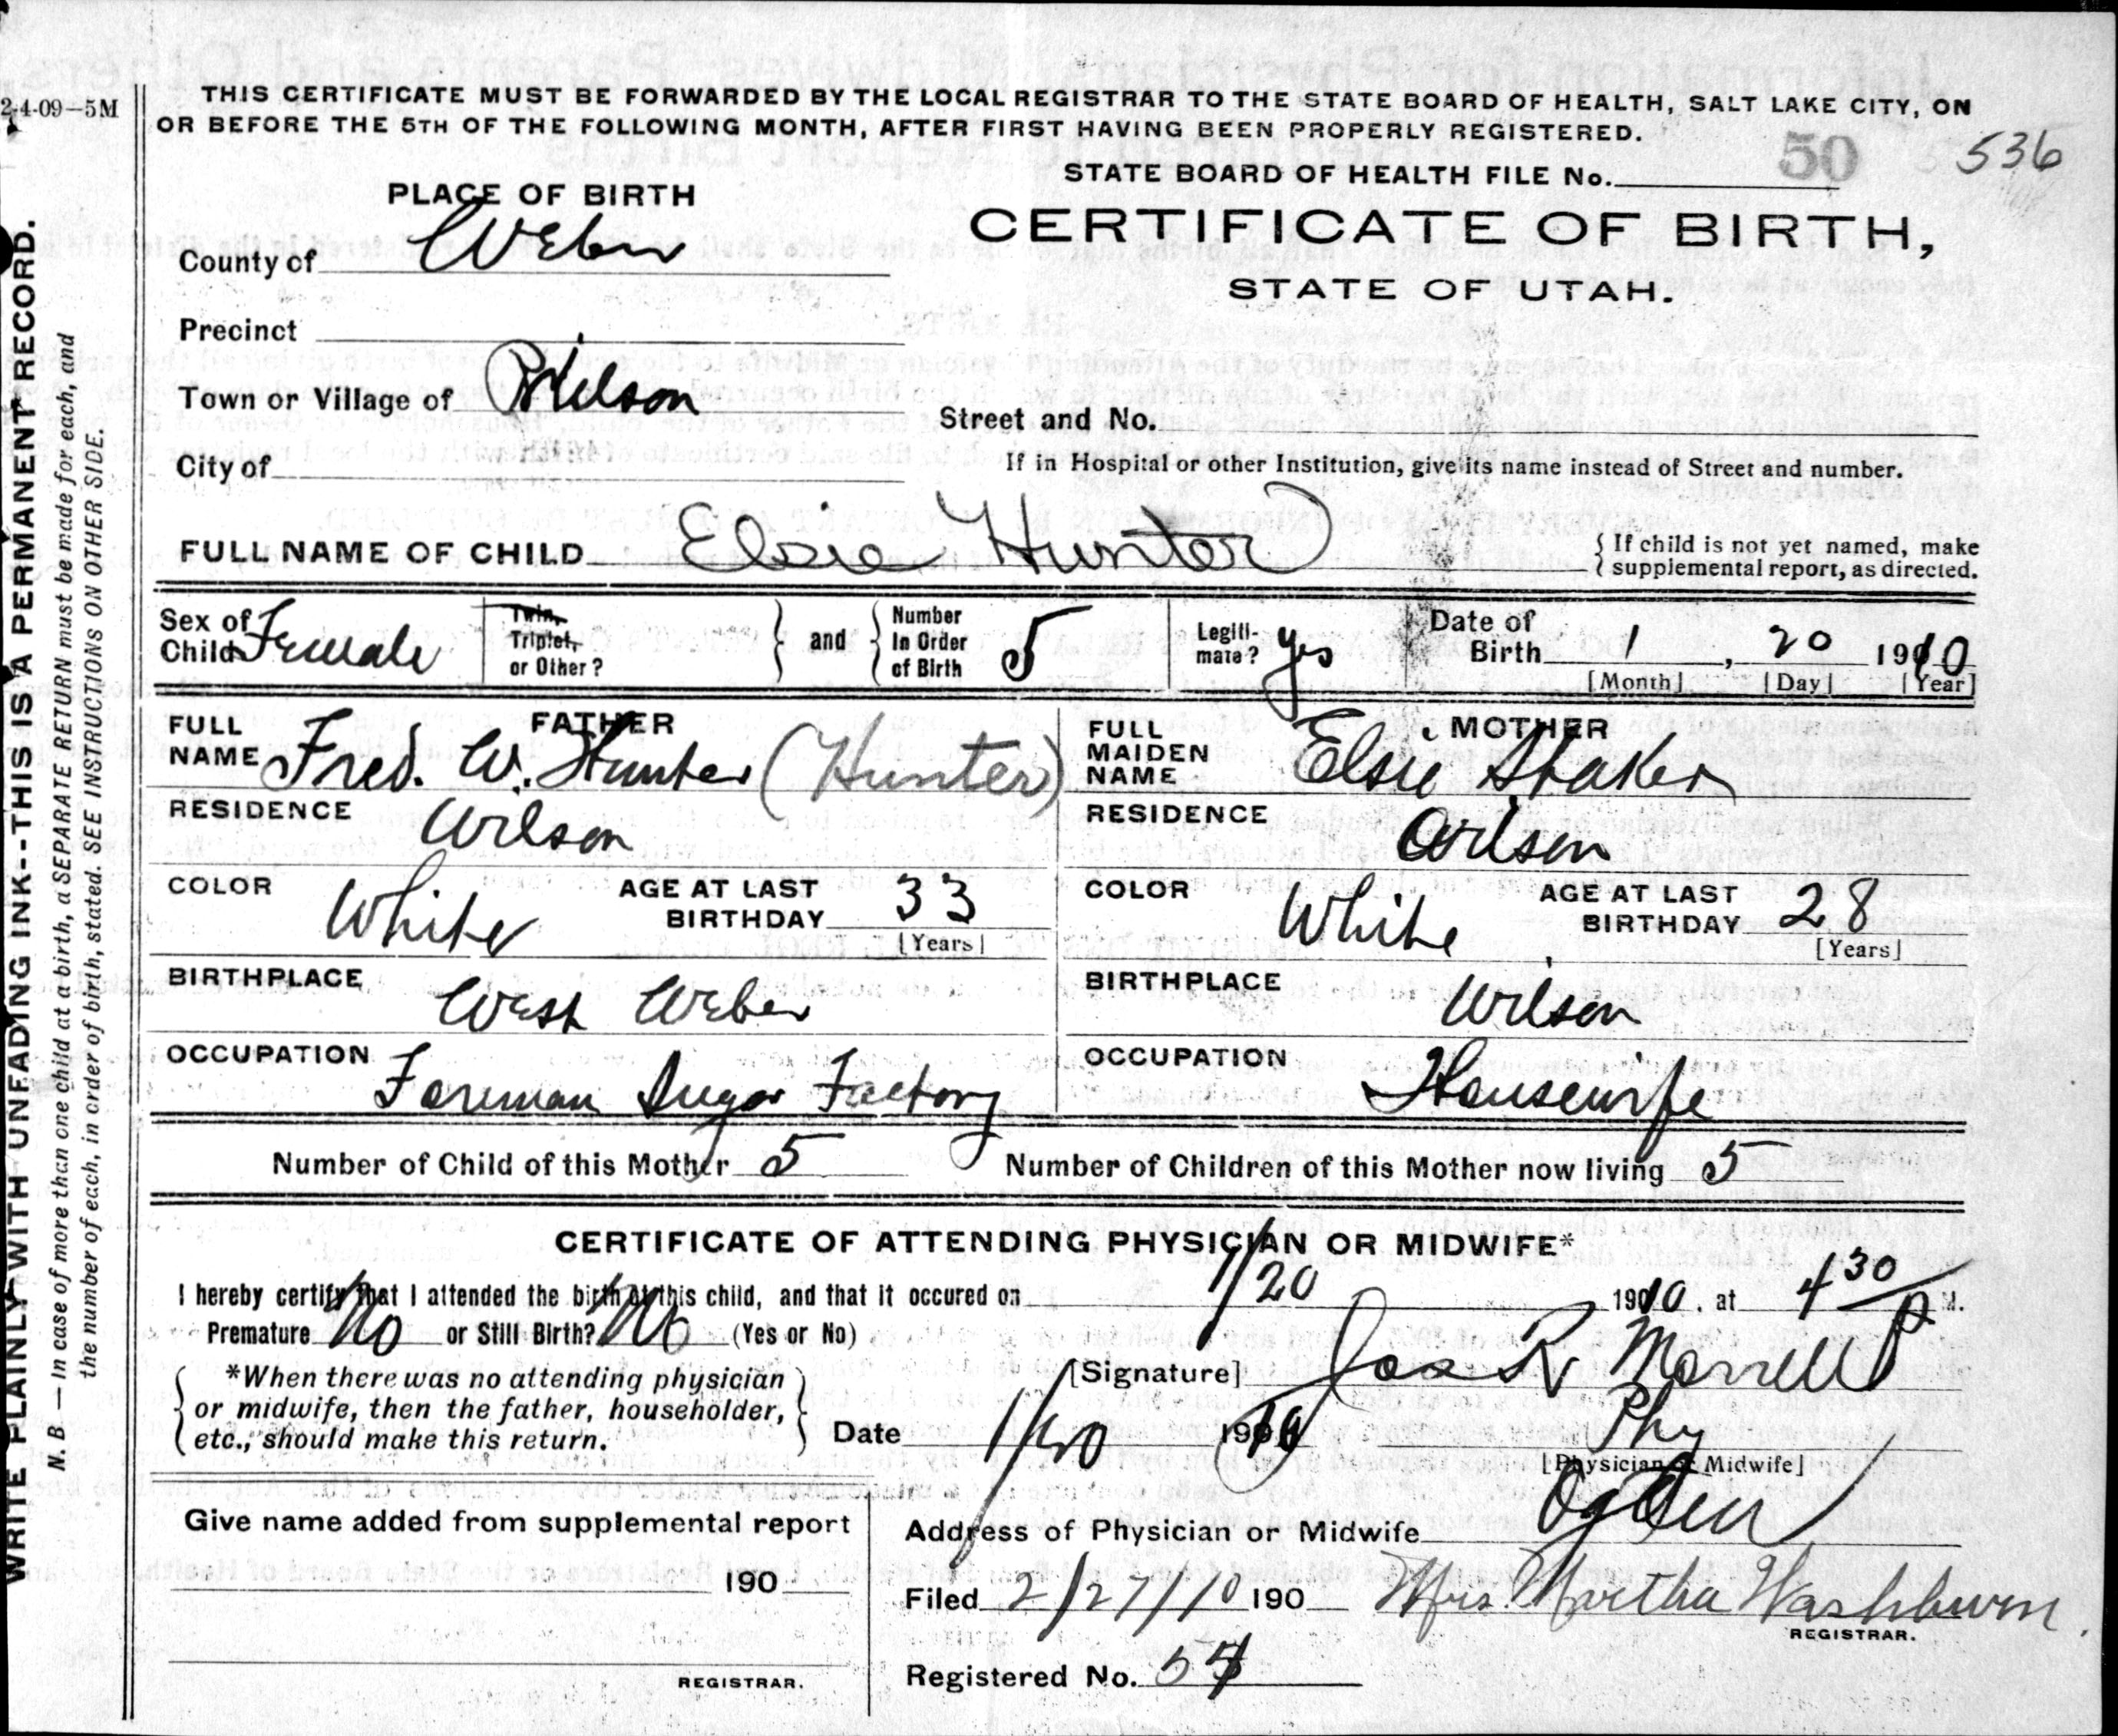 2-4-09—5M
THIS CERTIFICATE MUST BE FORWARDED BY THE LOCAL REGISTRAR TO THE STATE BOARD OF HEALTH, SALT LAKE CITY, ON
OR BEFORE THE 5TH OF THE FOLLOWING MONTH, AFTER FIRST HAVING BEEN PROPERLY REGISTERED.
STATE BOARD OF HEALTH FILE No. 50 536
PLACE OF BIRTH
CERTIFICATE OF BIRTH,
STATE OF UTAH.
County of Weber
Precinct
Town or Village of Wilson
Street and No.
City of
If in Hospital or other Institution, give its name instead of Street and number.
FULL NAME OF CHILD Elsie Hunter
{ If child is not yet named, make
supplemental report, as directed.
Sex of Child Female
Twin, Triplet, or Other?
and
Number In Order of Birth 5
Legiti-mate? yes
Date of Birth 1, 20 1910
[Month] [Day] [Year]
FATHER
FULL NAME Fred. W. Hunter (Hunter)
RESIDENCE Wilson
COLOR White
AGE AT LAST BIRTHDAY 33
[Years]
BIRTHPLACE West Weber
OCCUPATION Foreman Sugar Factory
MOTHER
FULL MAIDEN NAME Elsie Staker
RESIDENCE Wilson
COLOR White
AGE AT LAST BIRTHDAY 28
[Years]
BIRTHPLACE Wilson
OCCUPATION Housewife
Number of Child of this Mother 5
Number of Children of this Mother now living 5
CERTIFICATE OF ATTENDING PHYSICIAN OR MIDWIFE*
I hereby certify that I attended the birth of this child, and that it occured on 1/20 1910. at 4 30 P M.
Premature No or Still Birth? No (Yes or No)
*When there was no attending physician
or midwife, then the father, householder,
etc., should make this return.
[Signature] Jos R Morrell
Phy
[Physician or Midwife]
Date 1/20 1910
Address of Physician or Midwife Ogden
Give name added from supplemental report
190
REGISTRAR.
Filed 2/27/10 190 Mrs. Martha Washburn
REGISTRAR.
Registered No. 54
WRITE PLAINLY WITH UNFADING INK--THIS IS A PERMANENT RECORD.
N. B — In case of more than one child at a birth, a SEPARATE RETURN must be made for each, and
the number of each, in order of birth, stated. SEE INSTRUCTIONS ON OTHER SIDE.